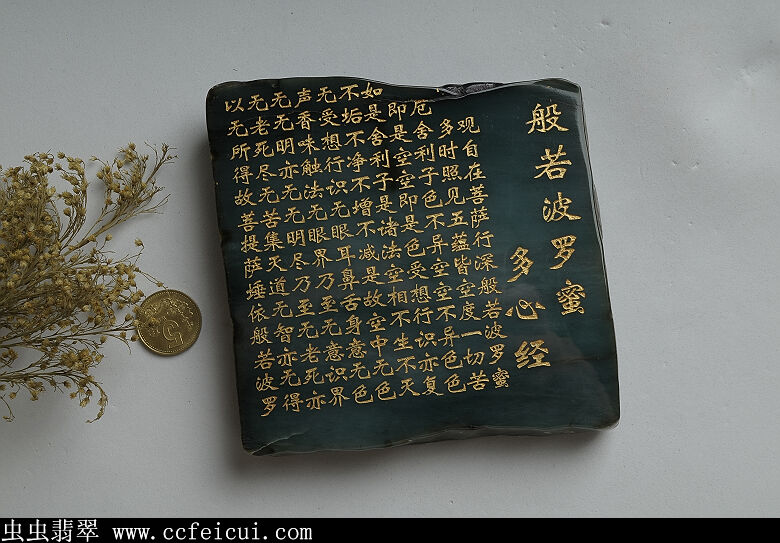 般若波罗蜜
多心经
观自在菩萨行深般若波罗蜜
多时照见五蕴皆空度一切苦
厄舍利子色不异空空不异色
即是空空即是色受想行识亦复
如是舍利子是诸法空相不生不灭
不垢不净不增不减是故空中无色
无受想行识无眼耳鼻舌身意无色
声香味触法无眼界乃至无意识界
无无明亦无无明尽乃至无老死亦
无老死尽无苦集灭道无智亦无得
以无所得故菩提萨埵依般若波罗
虫虫翡翠 www.ccfeicui.com